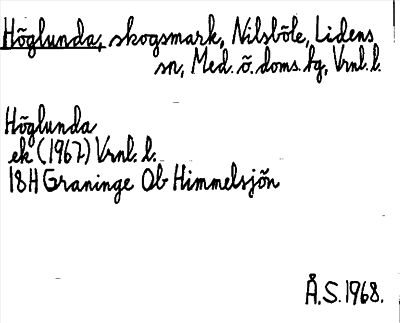 Höglunda, skogsmark, Nilsböle, Lidens
sn, Med. ö. doms. hg, Vrnl. l.
Höglunda
ek (1967) Vrnl. l.
18H Graninge Ob Himmelsjön
Å.S. 1968.